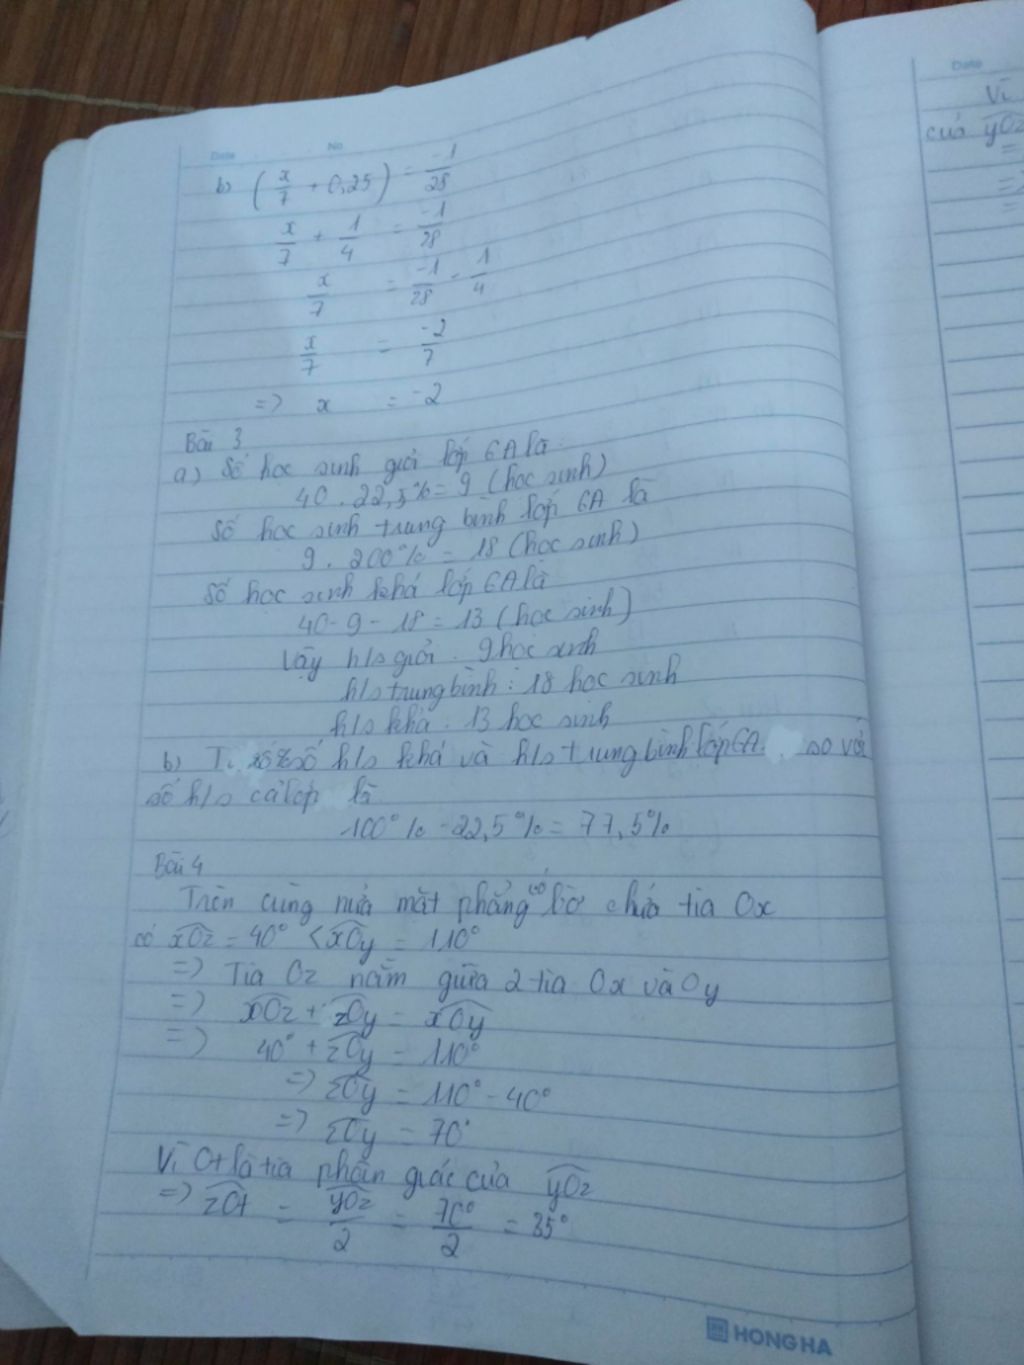 Date No
b) (x/7 + 0,25) = -1/28
x/7 + 1/4 = -1/28
x/7 = -1/28 - 1/4
x/7 = -2/7
=> x = -2
Bài 3
a) Số học sinh giỏi lớp 6A là:
40 . 22,5% = 9 (học sinh)
Số học sinh trung bình lớp 6A là
9 . 200% = 18 (học sinh)
Số học sinh khá lớp 6A là
40 - 9 - 18 = 13 (học sinh)
Vậy h/s giỏi : 9 học sinh
h/s trung bình : 18 học sinh
h/s khá : 13 học sinh
b) Tỉ số % số h/s khá và h/s trung bình lớp 6A so với
số h/s cả lớp là
100% - 22,5% = 77,5%
Bài 4
Trên cùng nửa mặt phẳng có bờ chứa tia Ox
có xOz = 40° < xOy = 110°
=> Tia Oz nằm giữa 2 tia Ox và Oy
=> xOz + zOy = xOy
=> 40° + zOy = 110°
=> zOy = 110° - 40°
=> zOy = 70°
Vì Ot là tia phân giác của yOz
=> zOt = yOz/2 = 70°/2 = 35°
HONG HA
Date
Vì
của yOz
=
=>
=